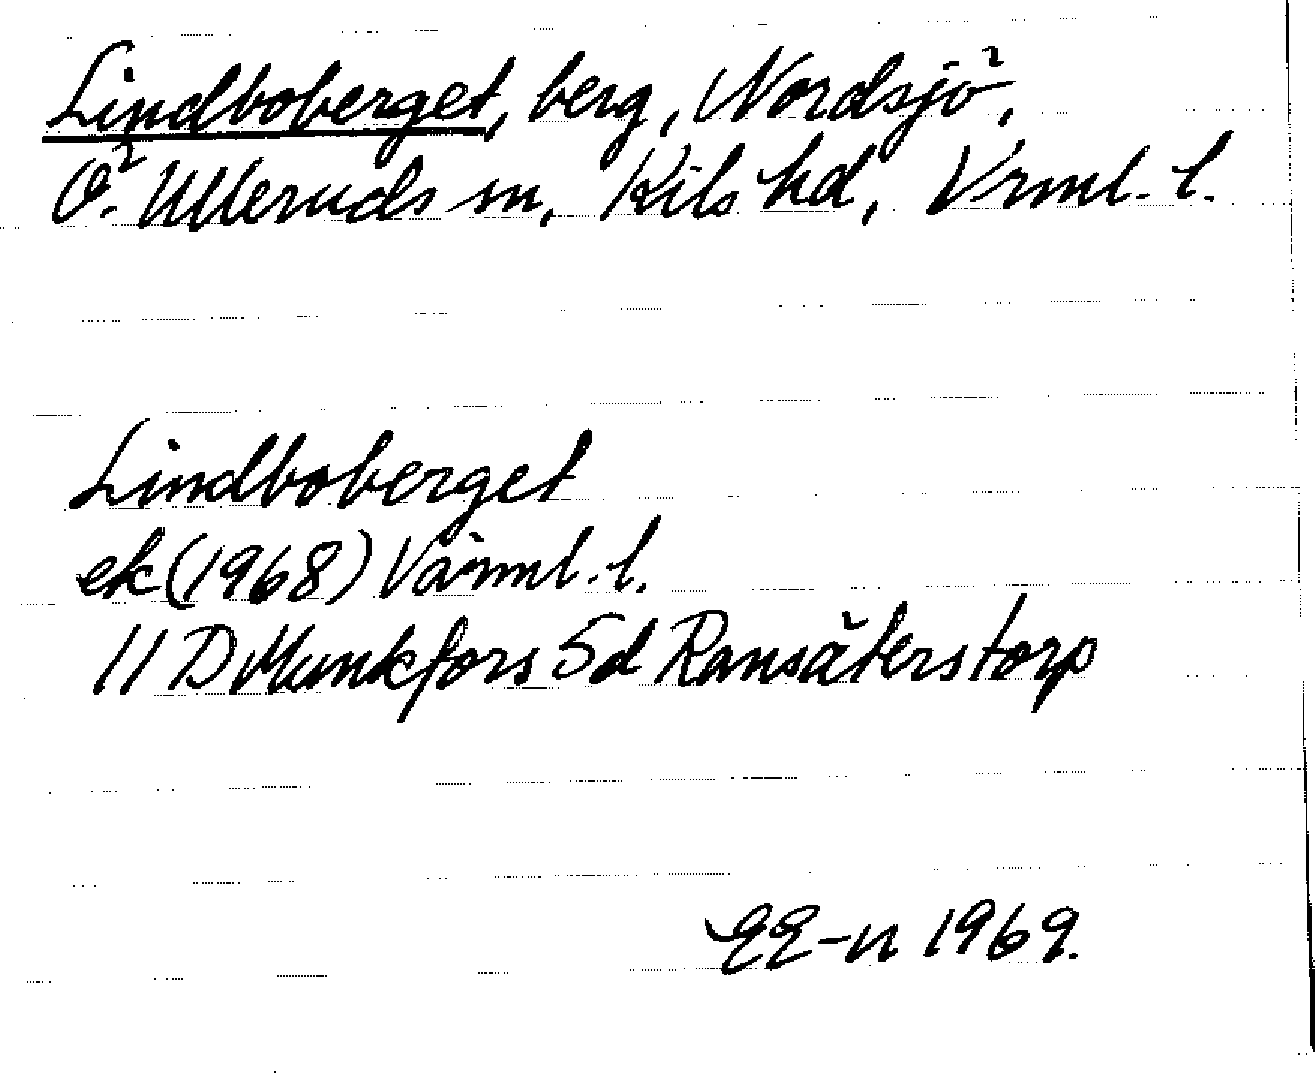 Lindboberget, berg, Nordsjö,
Ö. Ulleruds sn, Kils hd, Vrml. l.
Lindboberget
ek (1968) Värml. l.
11 D Munkfors Sd Ransäterstorp
EE-n 1969.